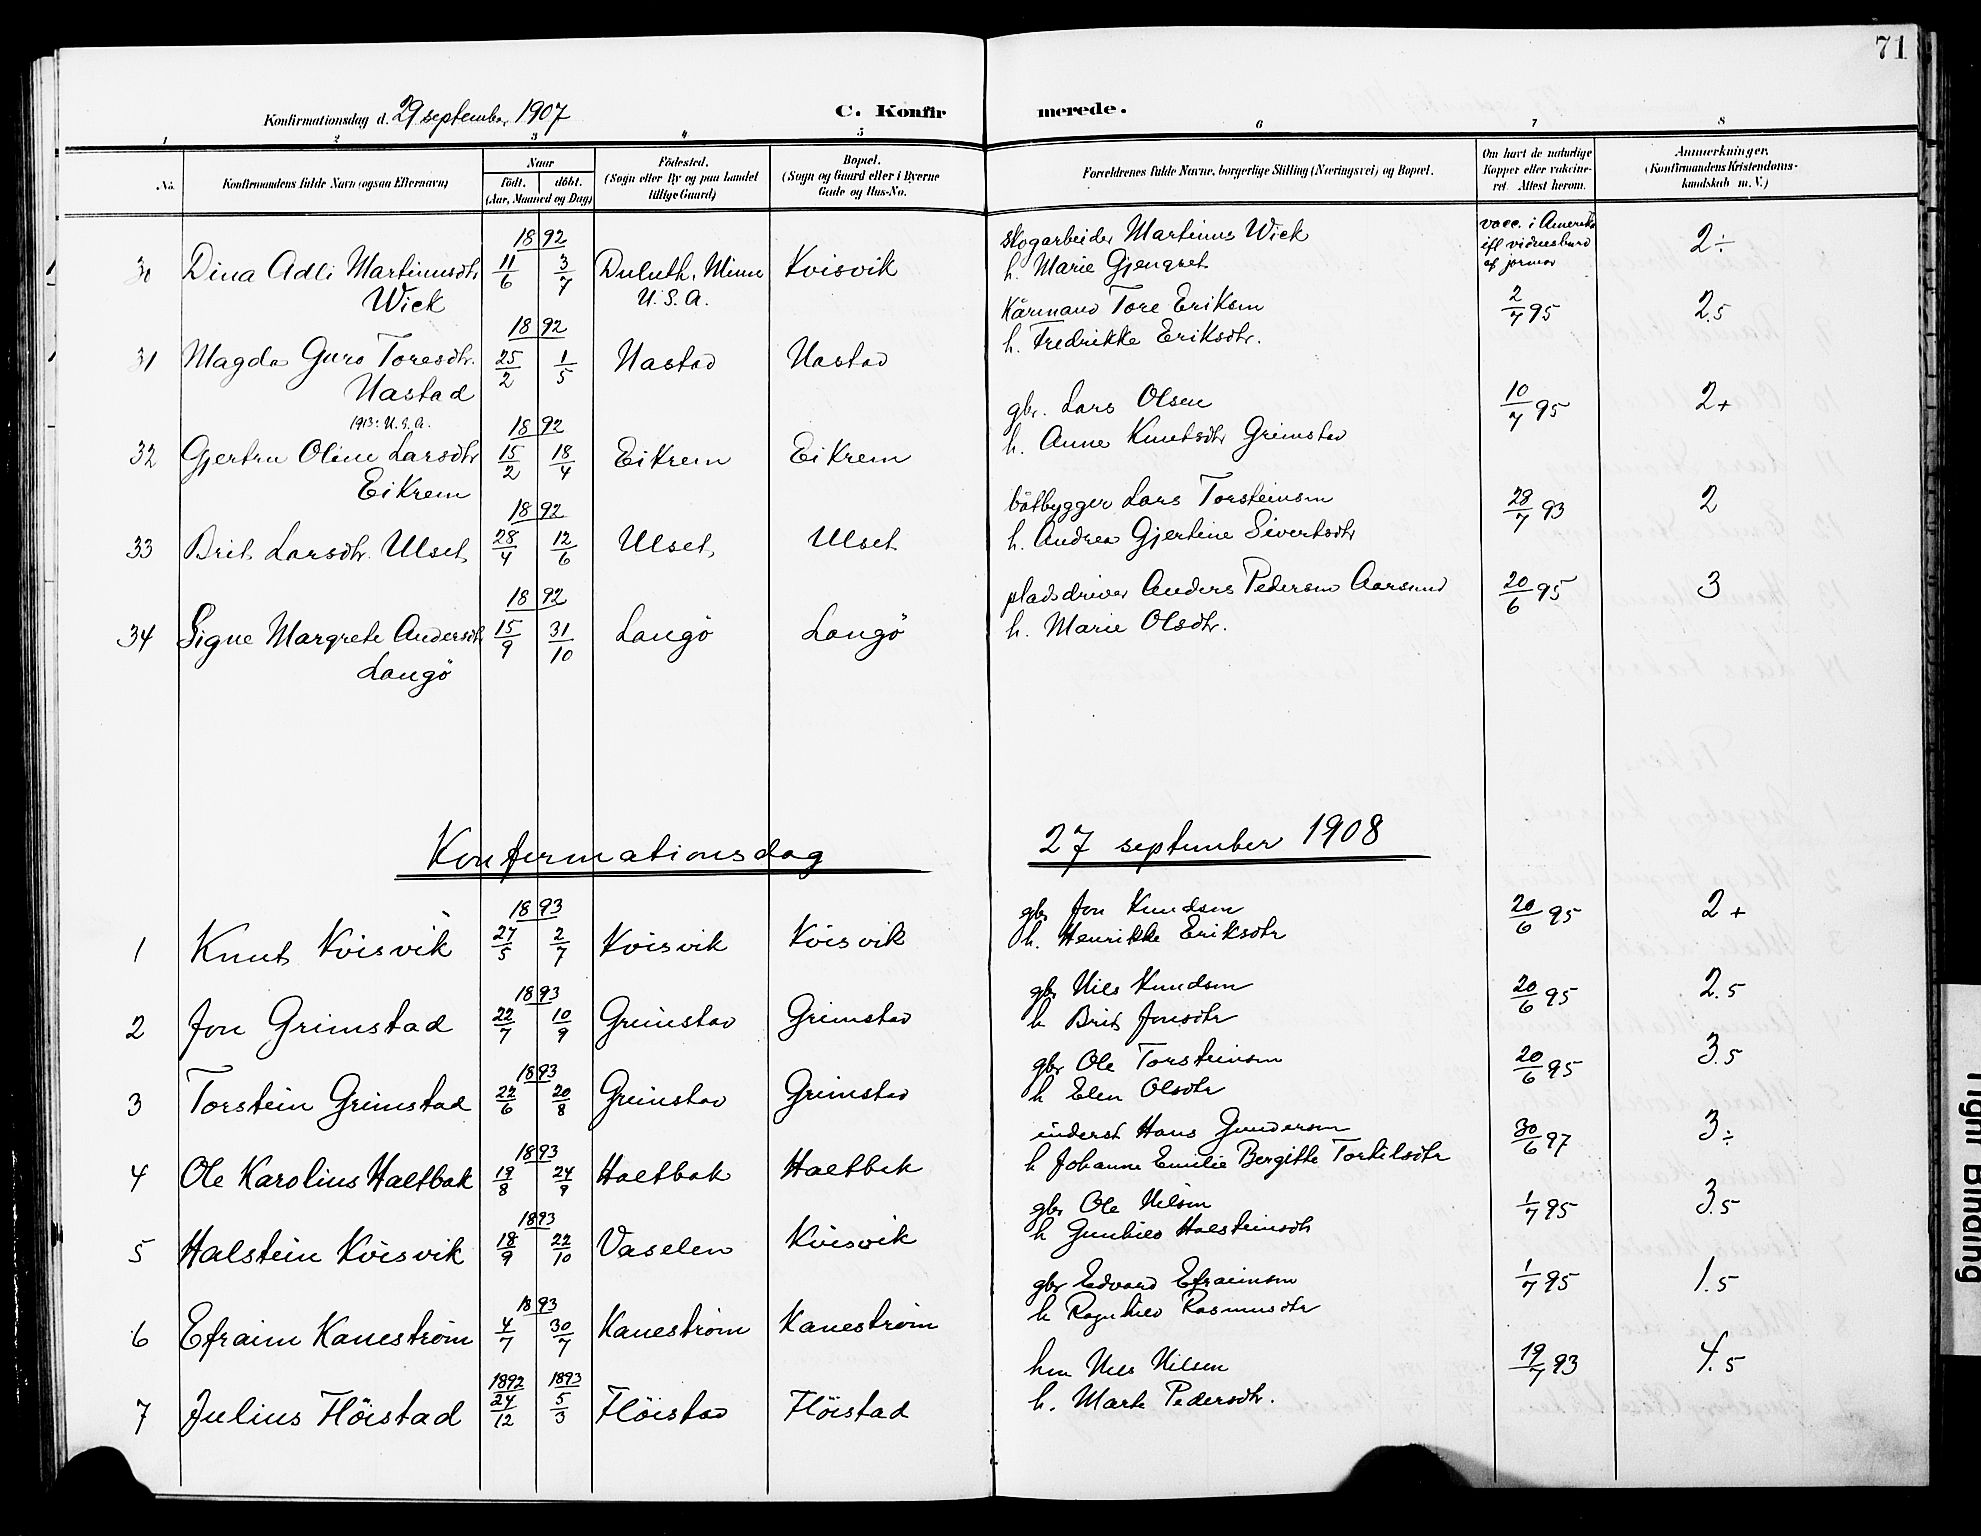 71
Konfirmationsdag d. 29 september 1907
C. Konfirmerede.
1 2 3 4 5 6 7 8
No.
Konfirmandens fulde Navn (ogsaa Efternavn)
Naar
födt. döbt.
(Aar, Maaned og Dag)
Födested.
(Sogn eller By og paa Landet
tillige Gaard)
Bopæl.
(Sogn og Gaard eller i Byerne
Gade og Hus-No.
Forældrenes fulde Navne, borgerlige Stilling (Næringsvei) og Bopæl.
Om havt de naturlige
Kopper eller vakcine-
ret. Attest herom.
Anmerkninger.
(Konfirmandens Kristendoms-
kundskab m. V.)
1892
30 Dina Adli Martinusdtr 11/6 3/7 Duluth, Minn Kvisvik
Wick U.S.A.
skogarbeider Martinus Wick
h. Marie Gjengset
vacc. i Amerika
efl vidnesburd
af jormor
2 ÷
1892
31 Magda Guro Toresdtr. 25/2 1/5 Nastad Nastad
Nastad
Kårmand Tore Eriksen
h. Fredrikke Eriksdtr.
2/7 95
2.5
1913: U.S.A.
1892
32 Gjertru Oline Larsdtr 15/2 18/4 Eikrem Eikrem
Eikrem
gbr. Lars Olsen
h. Anne Knutsdtr Grimstad
10/7 95
2+
1892
33 Brit Larsdtr. Ulset 28/4 12/6 Ulset Ulset
båtbygger Lars Torsteinsen
h. Andrea Gjertine Sivertsdtr
28/7 93
2
1892
34 Signe Margrete Andersdtr 15/9 31/10 Langö Langö
Langö
pladsdriver Anders Pedersen Aarsund
h. Marie Olsdtr.
20/6 95
3
Konfirmationsdag 27 september 1908
1893
1 Knut Kvisvik 27/5 2/7 Kvisvik Kvisvik
gbr Jon Knudsen
h. Henrikke Eriksdtr
20/6 95
2+
1893
2 Jon Grimstad 22/7 10/9 Grimstad Grimstad
gbr Nils Knudsen
h Brit Jonsdtr
20/6 95
2.5
1893
3 Torstein Grimstad 22/6 20/8 Grimstad Grimstad
gbr Ole Torsteinsen
h Elen Olsdtr
20/6 95
3.5
1893
4 Ole Karolius Haltbak 19/8 24/9 Haltbak Haltbak
inderst Hans Gundersen
h Johanne Emilie Bergitte Torkilsdtr
30/6 97
3 ÷
1893
5 Halstein Kvisvik 18/9 22/10 Vaselen Kvisvik
gbr Ole Nilsen
h Gunhild Halsteinsdtr
1/7 95
3.5
1893
6 Efraim Kanestrøm 4/7 30/7 Kanestrøm Kanestrøm
gbr Edvard Efraimsen
h Ragnhild Rasmusdtr
1/7 95
1.5
1892 1893
7 Julius Flöistad 24/12 5/3 Flöistad Flöistad
hm Nils Nilsen
h. Marte Pedersdtr.
19/7 93
4.5
Tight Binding